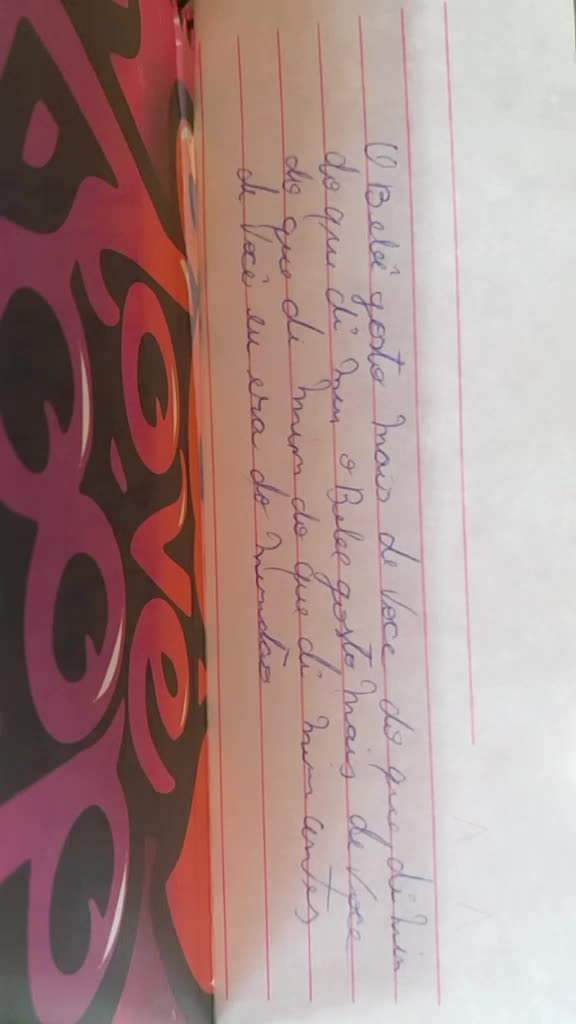 O Belê gosto mais de Voce do que di min
do que di min o Belee gosto mais de Voce
do que di mim do que di mim antes
de Você eu era do mundão
Love